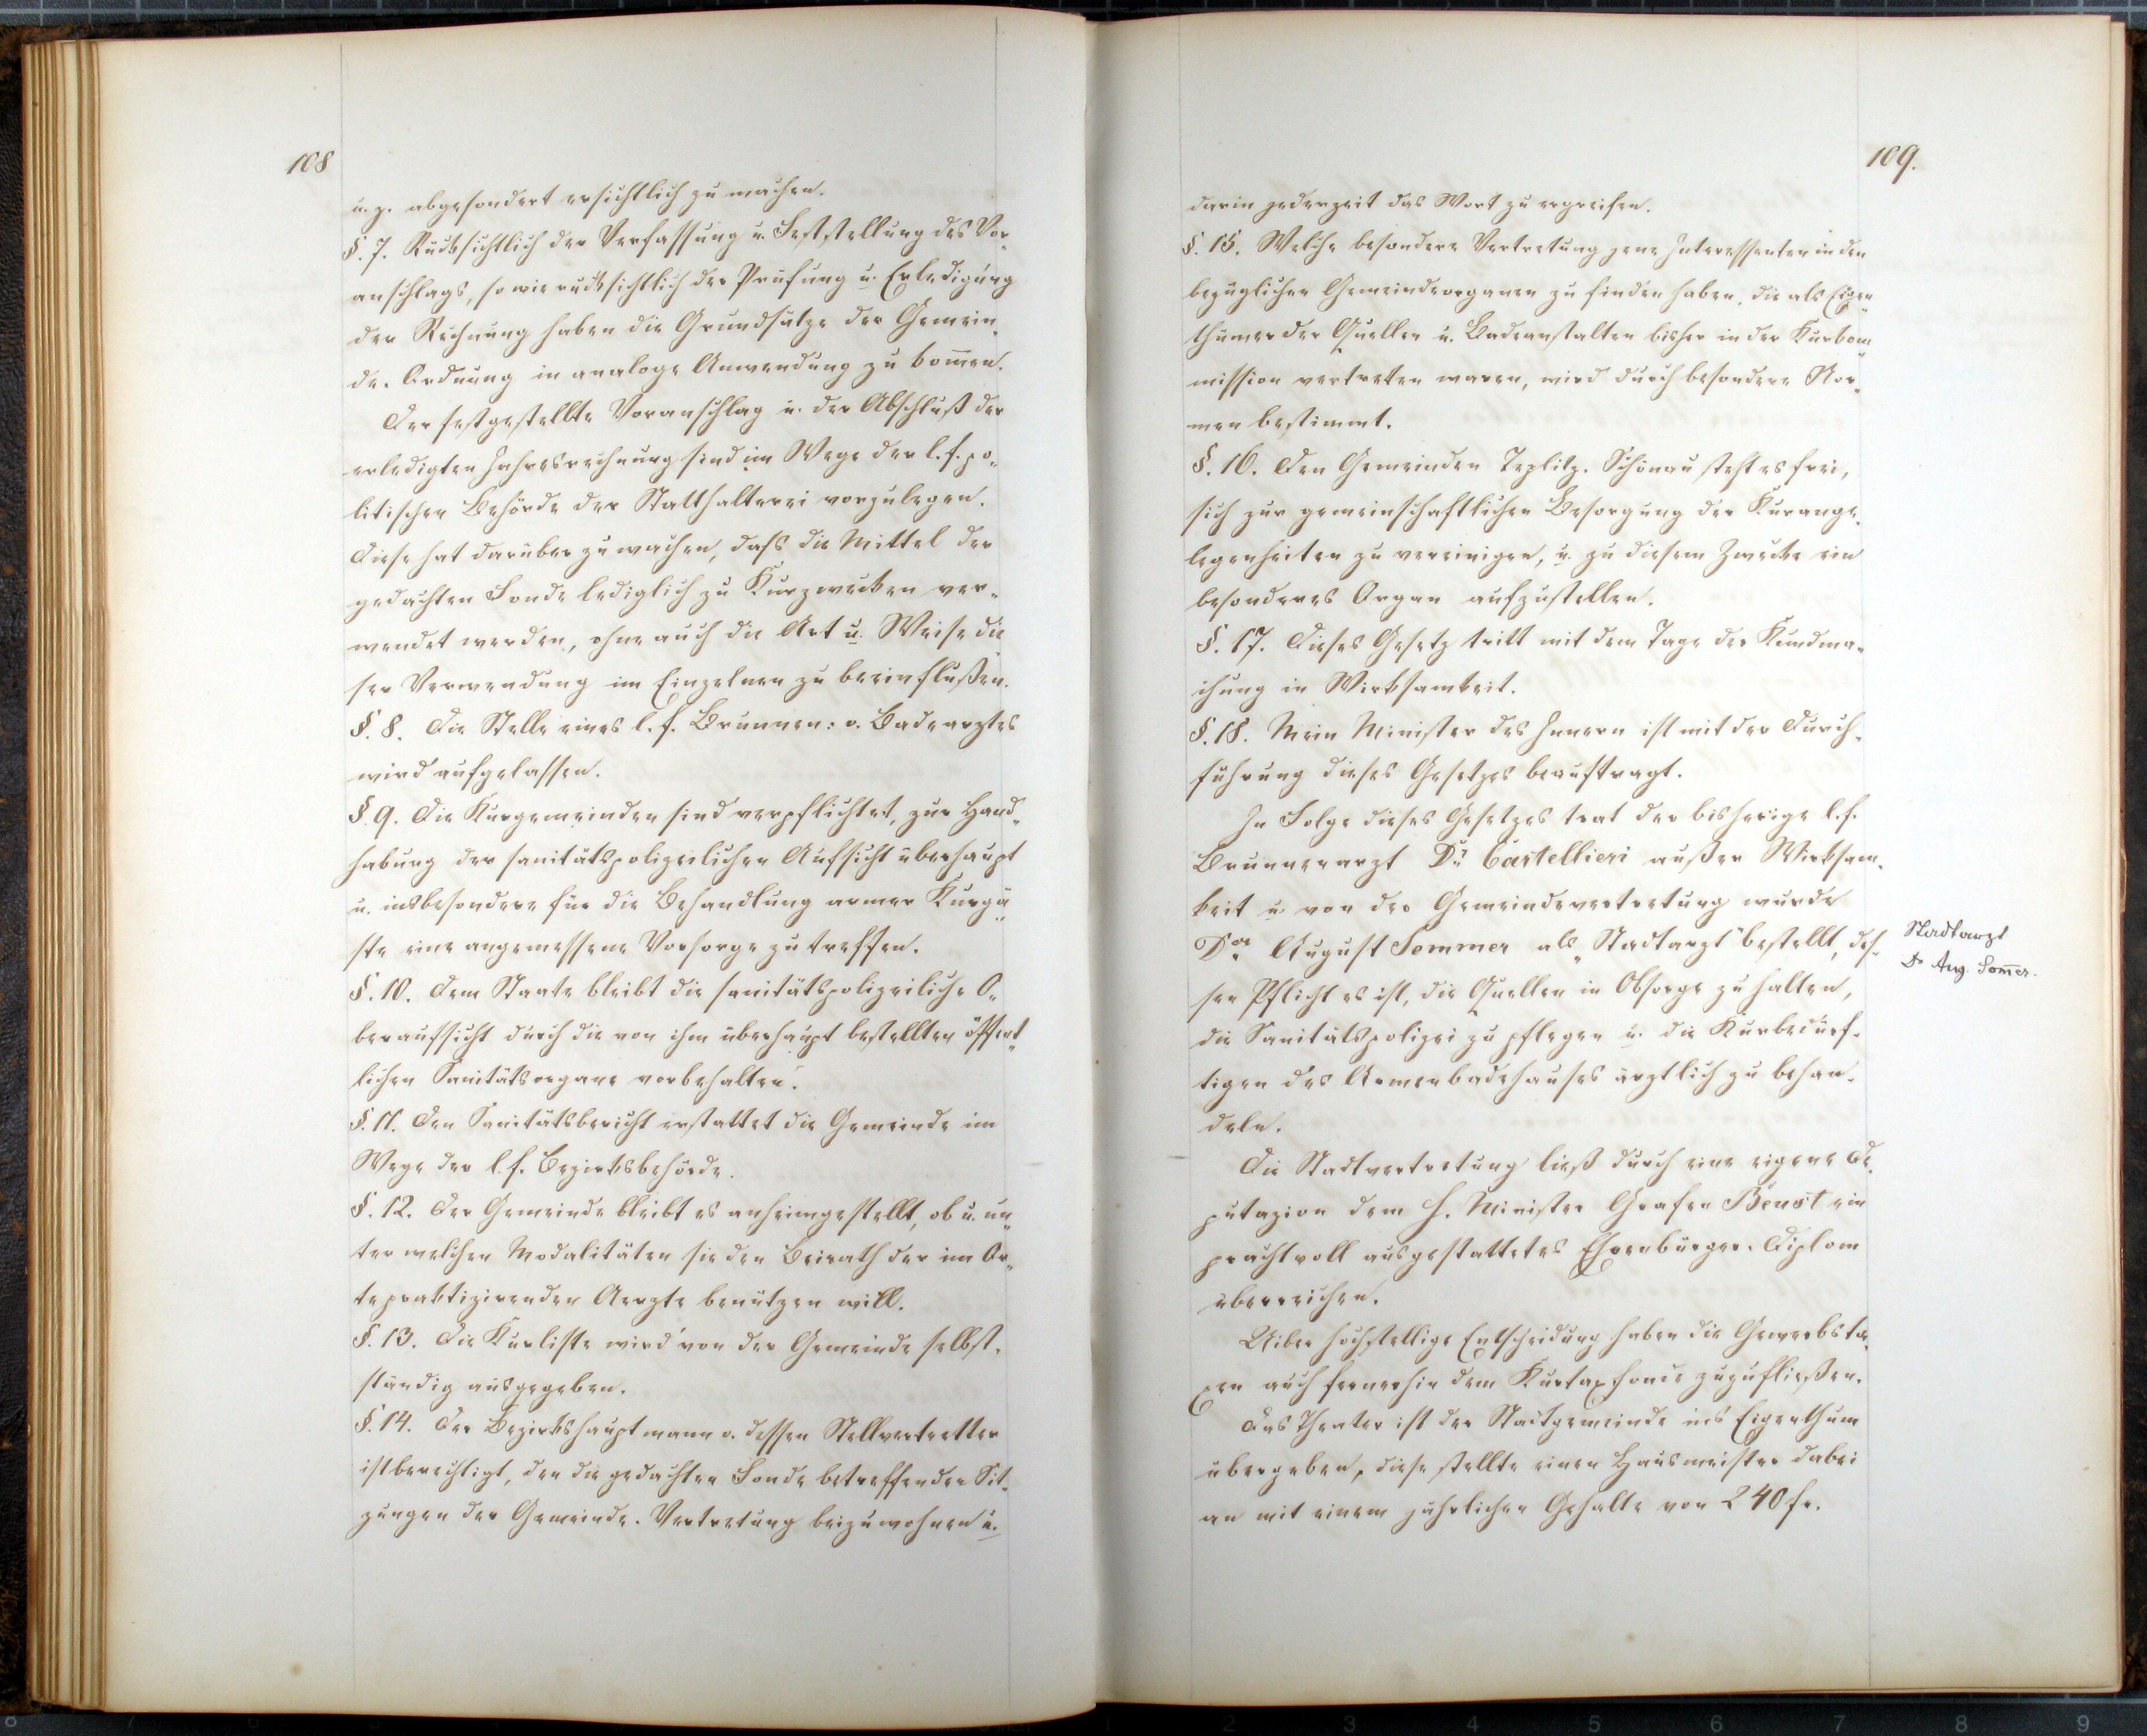 108
u. z. abgesondert ersichtlich zu machen.
§. 7. Rücksichtlich der Verfassung u. Feststellung des Vor„
anschlags, so wie rücksichtlich der Prüfung u. Erledigung
der Rechnung haben die Grundsätze der Gemein„
de-Ordnung in analoge Anwendung zu kom̅en.
Der festgestellte Voranschlag u. der Abschluß der
erledigten Jahresrechnung sind im Wege der l. f. po„
litischen Behörde der Statthalterei vorzulegen.
Diese hat darüber zu wachen, dass die Mittel der
gedachten Fonde lediglich zu Kurzwecken ver„
wendet werden, ohne auch die Art u. Weise die„
ser Verwendung im Einzelnen zu beeinflußen.
§. 8. Die Stelle eines l. f. Brunnen: o. Badearztes
wird aufgelassen.
§. 9. Die Kurgemeinden sind verpflichtet, zur Hand„
habung der sanitätspolizeilichen Aufsicht überhaupt
u. insbesondere für die Behandlung armer Kurgä„
ste eine angemessene Vorsorge zu treffen.
§. 10. Dem Staate bleibt die sanitätspolizeiliche O„
beraufsicht durch die von ihm überhaupt bestellten öffent„
lichen Sanitätsorgane vorbehalten.
§. 11. Den Sanitätsbericht erstattet die Gemeinde im
Wege der l. f. Bezirksbehörde.
§. 12. Der Gemeinde bleibt es anheimgestellt, ob u. un„
ter welchen Modalitäten sie den Beirath der im Or„
te praktizirenden Aerzte benützen will.
§. 13. Die Kurliste wird von der Gemeinde selbst„
ständig ausgegeben.
§. 14. Der Bezirkshauptmann o. dessen Stellvertretter
ist berechtigt, den die gedachten Fonde betreffenden Sit„
zungen der Gemeinde-Vertretung beizuwohnen u.
109.
darin jederzeit das Wort zu ergreifen.
§. 15. Welche besondere Vertretung jene Interessenten in den
bezüglichen Gemeindeorganen zu finden haben, die als Eigen„
thümer der Quellen u. Badeanstalten bisher in der Kurkom„
mission vertreten waren, wird durch besondere Nor„
men bestimmt.
§. 16. Den Gemeinden Teplitz-Schönau steht es frei,
sich zur gemeinschaftlichen Besorgung der Kurange„
legenheiten zu vereinigen, u. zu diesem Zwecke ein
besonderes Organ aufzustellen.
§. 17. Dieses Gesetz tritt mit dem Tage der Kundma„
chung in Wirksamkeit.
§. 18. Mein Minister des Innern ist mit der Durch„
führung dieses Gesetzes beauftragt.
In Folge dieses Gesetzes trat der bisherige l. f.
Brunnenarzt Dr Cartellieri außer Wirksam„
keit u. von der Gemeindevertretung wurde
Dor August Sommer als „Stadtarzt" bestellt, des„
sen Pflicht es ist, die Quellen in Obsorge zu halten,
die Sanitätspolizei zu pflegen u. die Kurbedürf„
tigen des Armenbadehauses ärztlich zu behan„
deln.
Die Stadtvertretung ließ durch eine eigene De„
putazion dem H. Minister Grafen Beust ein
prachtvoll ausgestattetes Ehrenbürger-Diplom
überreichen.
Uiber hochstellige Entscheidung haben die Gewerbsta„
xen auch fernerhin dem Kurtaxfonde zuzufließen.
Das Theater ist der Stadtgemeinde ins Eigenthum
übergeben, diese stellte einen Hausmeister dabei
an mit einem jährlichen Gehalte von 240 fr.
Stadtarzt
Dr Aug. Som̅er.